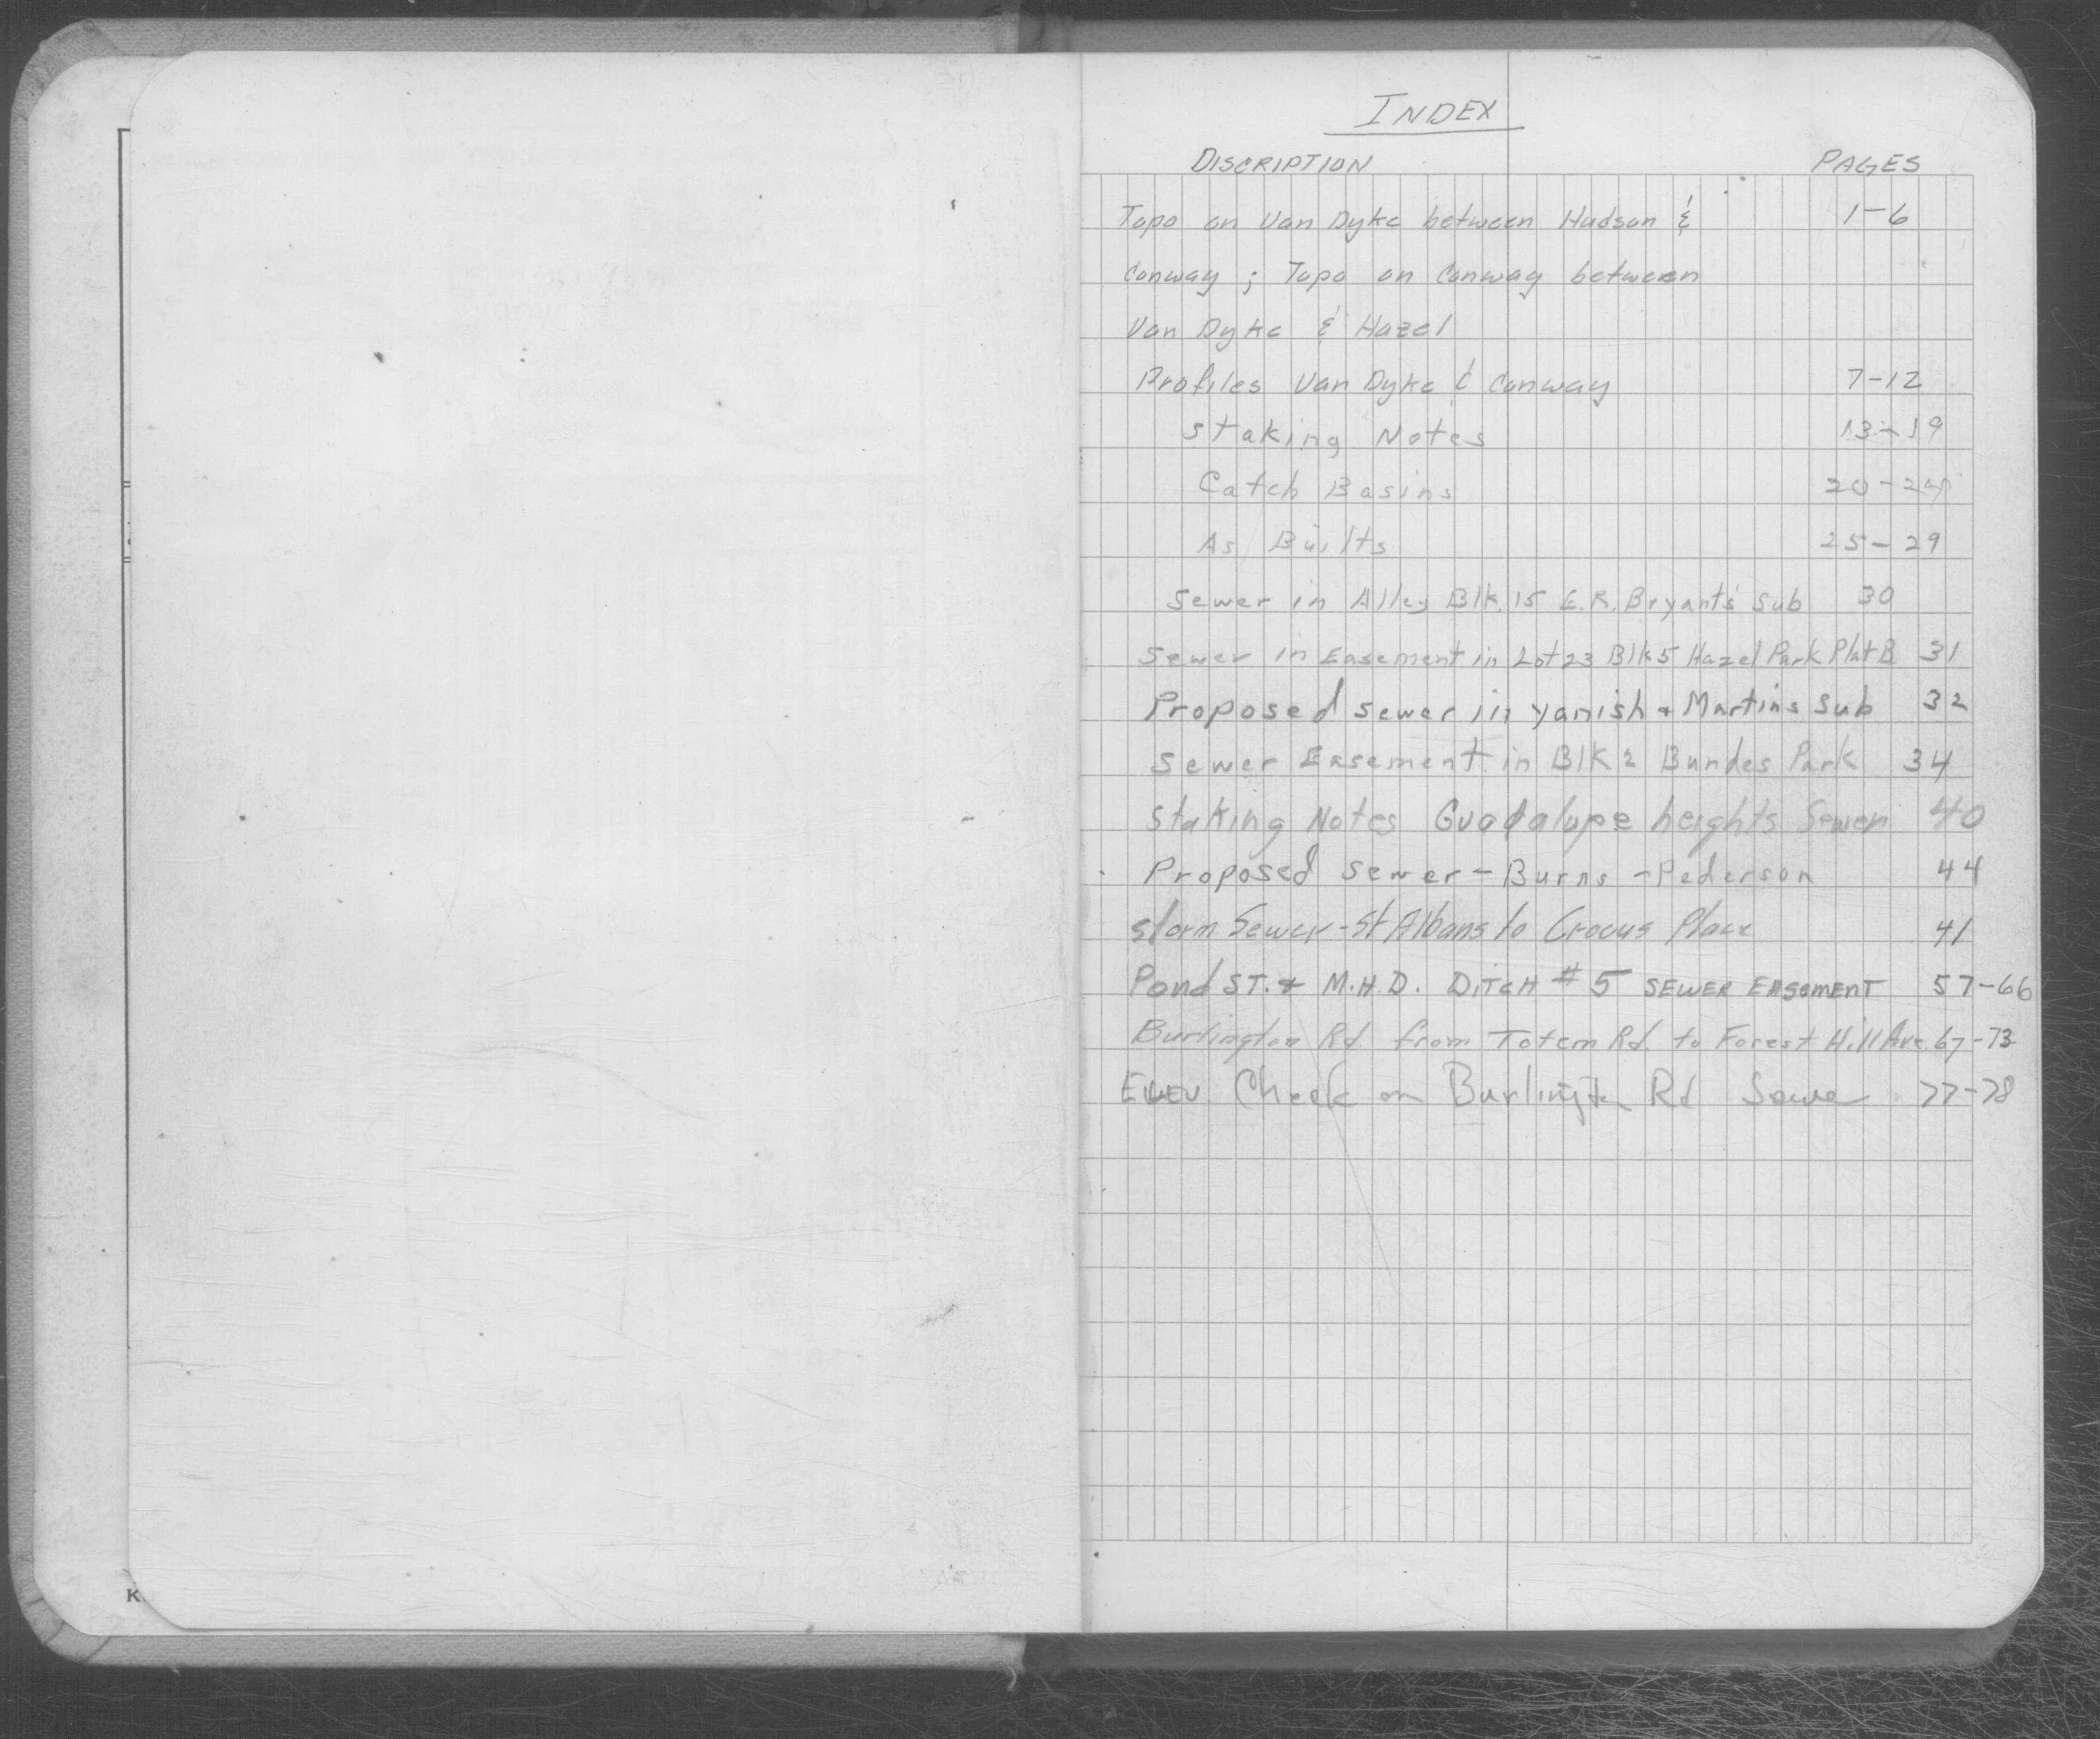 INDEX
DISCRIPTION PAGES
Topo on Van Dyke between Hudson & 1-6
Conway ; Topo on Conway between
Van Dyke & Hazel
Profiles Van Dyke & Conway 7-12
Staking Notes 13-19
Catch Basins 20-24
As Builts 25-29
Sewer in Alley Blk. 15 E.R. Bryant's Sub 30
Sewer in Easement in Lot 23 Blk 5 Hazel Park Plat B 31
Proposed sewer in Yanish & Martins Sub 32
Sewer Easement in Blk 2 Bundes Park 34
Staking Notes Guadalupe heights Sewer 40
Proposed Sewer - Burns - Pederson 44
Storm Sewer - St Albans to Crocus Place 41
Pond ST. & M.H.D. DITCH #5 SEWER EASEMENT 57-66
Burlington Rd. from Totem Rd. to Forest Hill Ave. 67-73
ELEV. Check on Burlington Rd Sewer 77-78
K